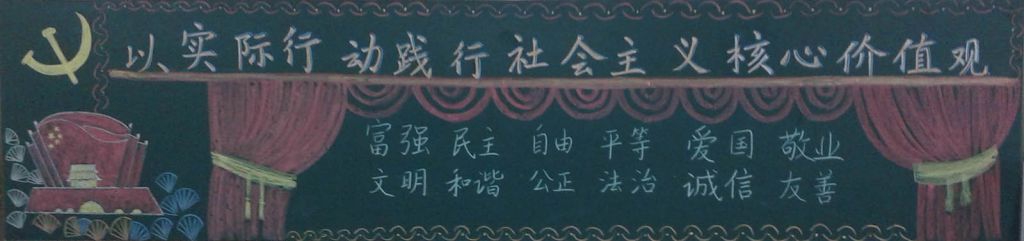 以实际行动践行社会主义核心价值观
富强 民主 自由 平等 爱国 敬业
文明 和谐 公正 法治 诚信 友善